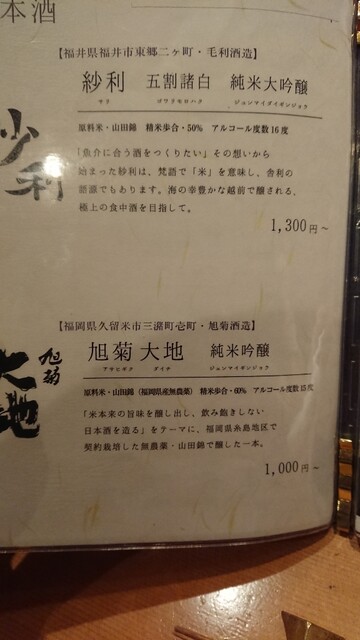 本酒
【福井県福井市東郷二ヶ町・毛利酒造】
紗利 五割諸白 純米大吟醸
サリ ゴワリモロハク ジュンマイダイギンジョウ
原料米・山田錦 精米歩合・50% アルコール度数16度
「魚介に合う酒をつくりたい」その想いから
始まった紗利は、梵語で「米」を意味し、舎利の
語源でもあります。海の幸豊かな越前で醸される、
極上の食中酒を目指して。
1,300円～
紗利
【福岡県久留米市三潴町壱町・旭菊酒造】
旭菊 大地 純米吟醸
アサヒギク ダイチ ジュンマイギンジョウ
原料米・山田錦（福岡県産無農薬） 精米歩合・60% アルコール度数15度
「米本来の旨味を醸し出し、飲み飽きしない
日本酒を造る」をテーマに、福岡県糸島地区で
契約栽培した無農薬・山田錦で醸した一本。
1,000円～
旭菊
大地